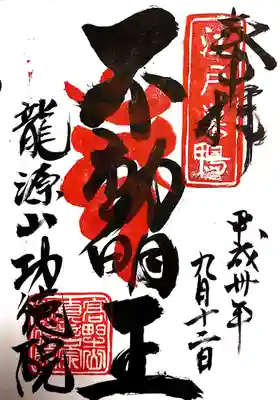 奉拝
平成丗年
九月十二日
不動明王
龍源山功徳院